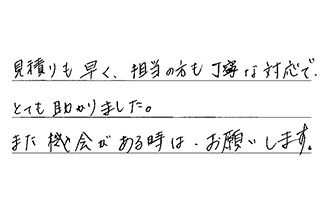 見積りも早く、担当の方も丁寧な対応で、
とても助かりました。
また機会がある時は、お願いします。